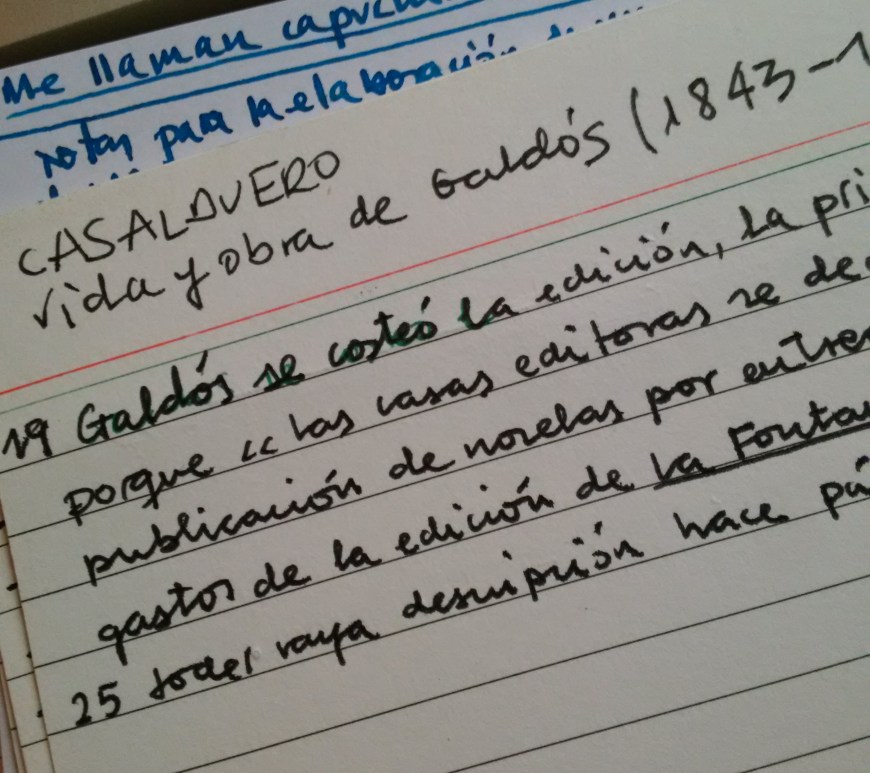 Me llaman capuch
notas para la elaboración de
CASALDUERO
vida y obra de Galdós (1843-1
19 Galdós se costeó la edición, la pri
porque "las casas editoras se de
publicación de novelas por entre
gastos de la edición de La Fonta
25 raya descripción hace pú